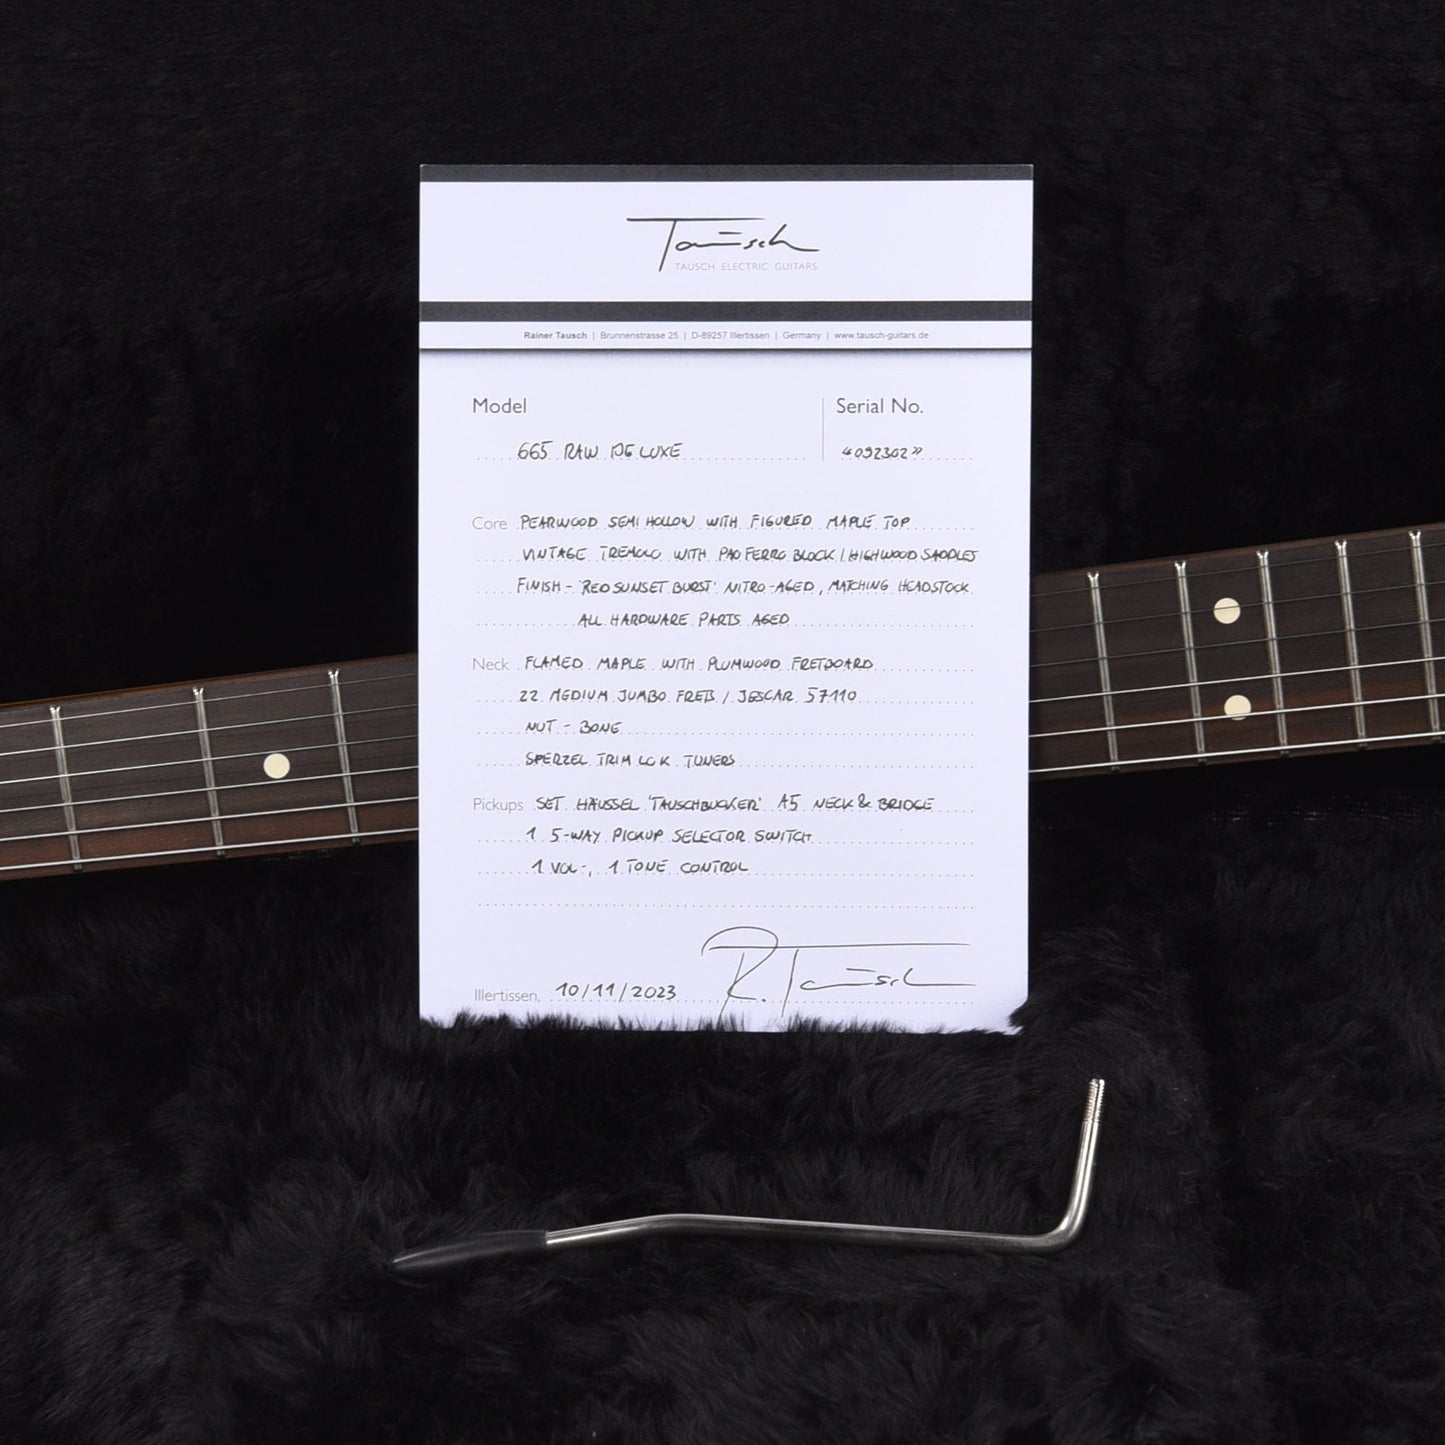 Tausch
TAUSCH ELECTRIC GUITARS
Rainer Tausch | Brunnenstrasse 25 | D-89257 Illertissen | Germany | www.tausch-guitars.de
Model Serial No.
665 RAW DELUXE «092302»
Core PEARWOOD SEMI HOLLOW WITH FIGURED MAPLE TOP
VINTAGE TREMOLO WITH PAO FERRO BLOCK / HIGHWOOD SADDLES
FINISH - 'RED SUNSET BURST' NITRO-AGED, MATCHING HEADSTOCK
ALL HARDWARE PARTS AGED
Neck FLAMED MAPLE WITH PLUMWOOD FRETBOARD
22 MEDIUM JUMBO FRETS / JESCAR 57110
NUT - BONE
SPERZEL TRIM LOK TUNERS
Pickups SET HÄUSSEL 'TAUSCHBUCKER' A5 NECK & BRIDGE
1 5-WAY PICKUP SELECTOR SWITCH
1 VOL-, 1 TONE CONTROL
R. Tausch
Illertissen, 10/11/2023